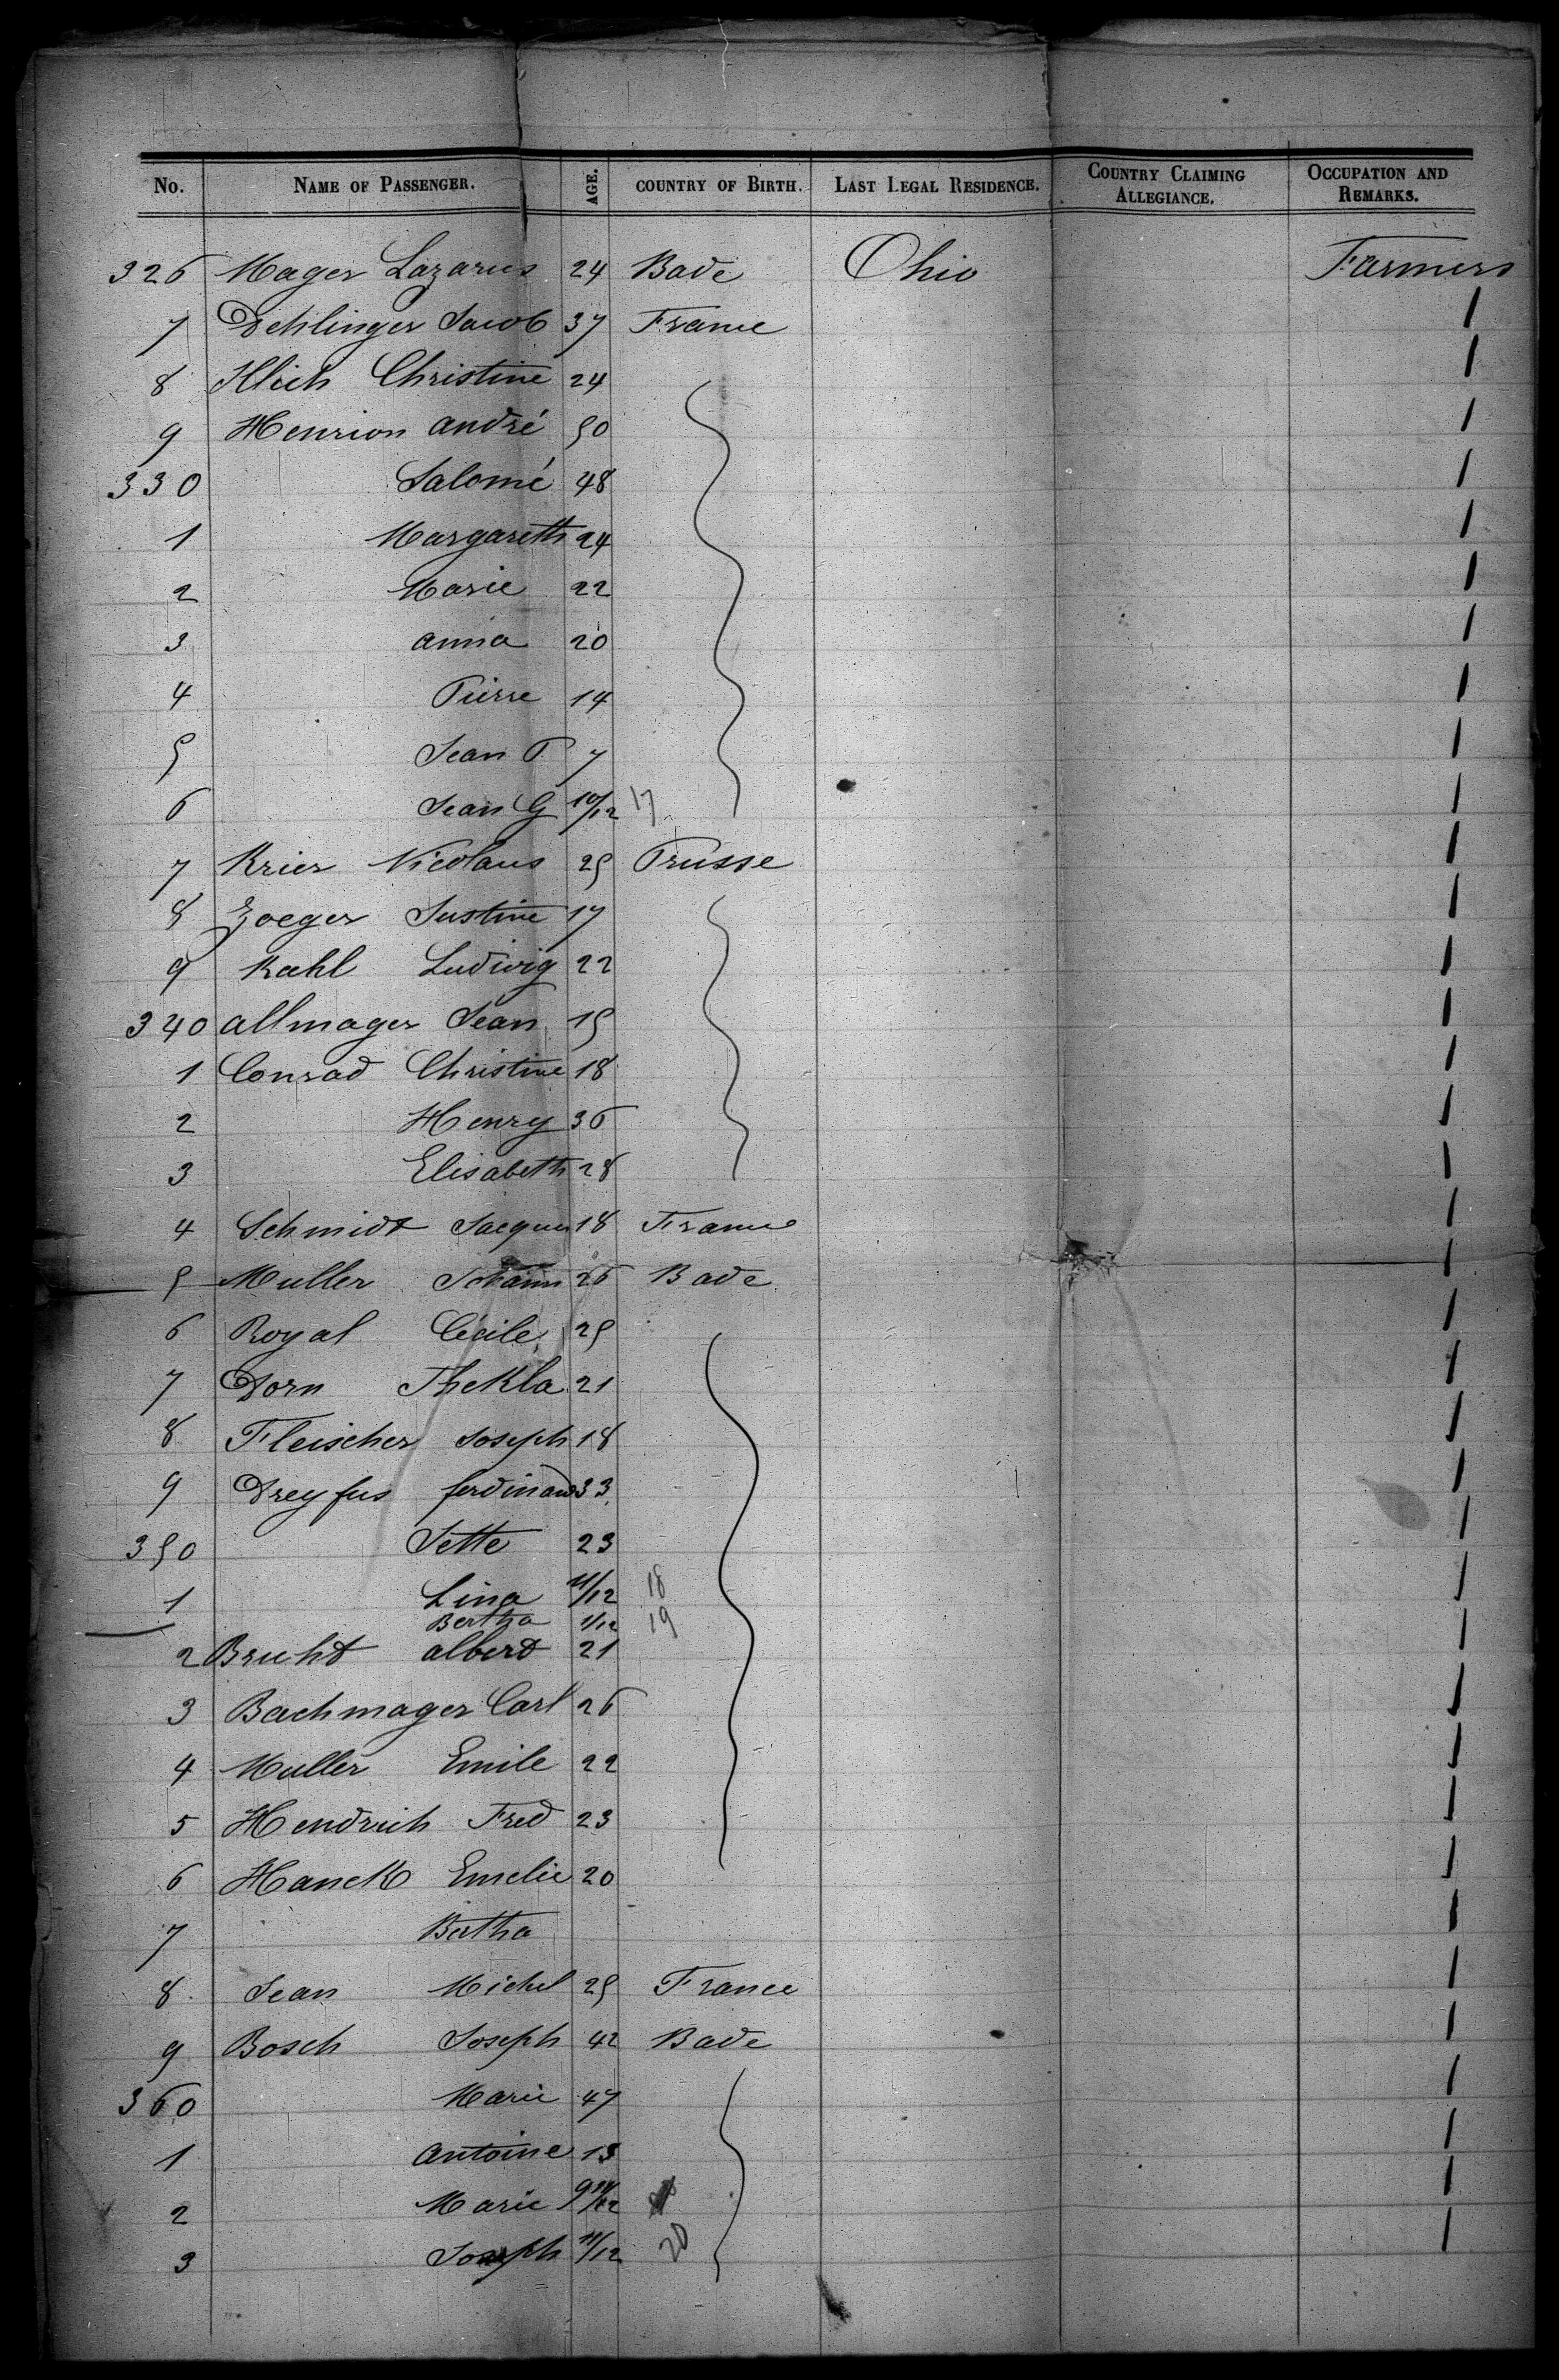 No. NAME OF PASSENGER. AGE. COUNTRY OF BIRTH. LAST LEGAL RESIDENCE. COUNTRY CLAIMING ALLEGIANCE. OCCUPATION AND REMARKS.
326 Mager Lazarus 24 Bade Ohio Farmers
7 Dehlinger Jacob 37 France
8 Christine 24
9 Henrion André 50
330 Salomé 48
1 Margareth 24
2 Marie 22
3 Anna 20
4 Pierre 14
5 Jean P. 7
6 Jean G 10/12 17
7 Krier Nicolaus 25 Prusse
8 Zoeger Justine 17
9 Kahl Ludwig 22
340 Allmager Jean 15
1 Conrad Christine 18
2 Henry 36
3 Elisabeth 28
4 Schmidt Jacques 18 France
5 Muller Johann 26 Bade
6 Royal Cécile 25
7 Dorn Thekla 21
8 Fleischer Joseph 18
9 Dreyfus ferdinand 33
350 Jette 23
1 Lina 11/12 18
Bertha 1/12 19
2 Albert 21
3 Bachmager Carl 26
4 Muller Emile 22
5 Hendrich Fred 23
6 Hanck Emelie 20
7 Bertha
8 Jean Michel 25 France
9 Bosch Joseph 42 Bade
360 Marie 47
1 Antoine 13
2 Marie
3 Joseph 11/12 20